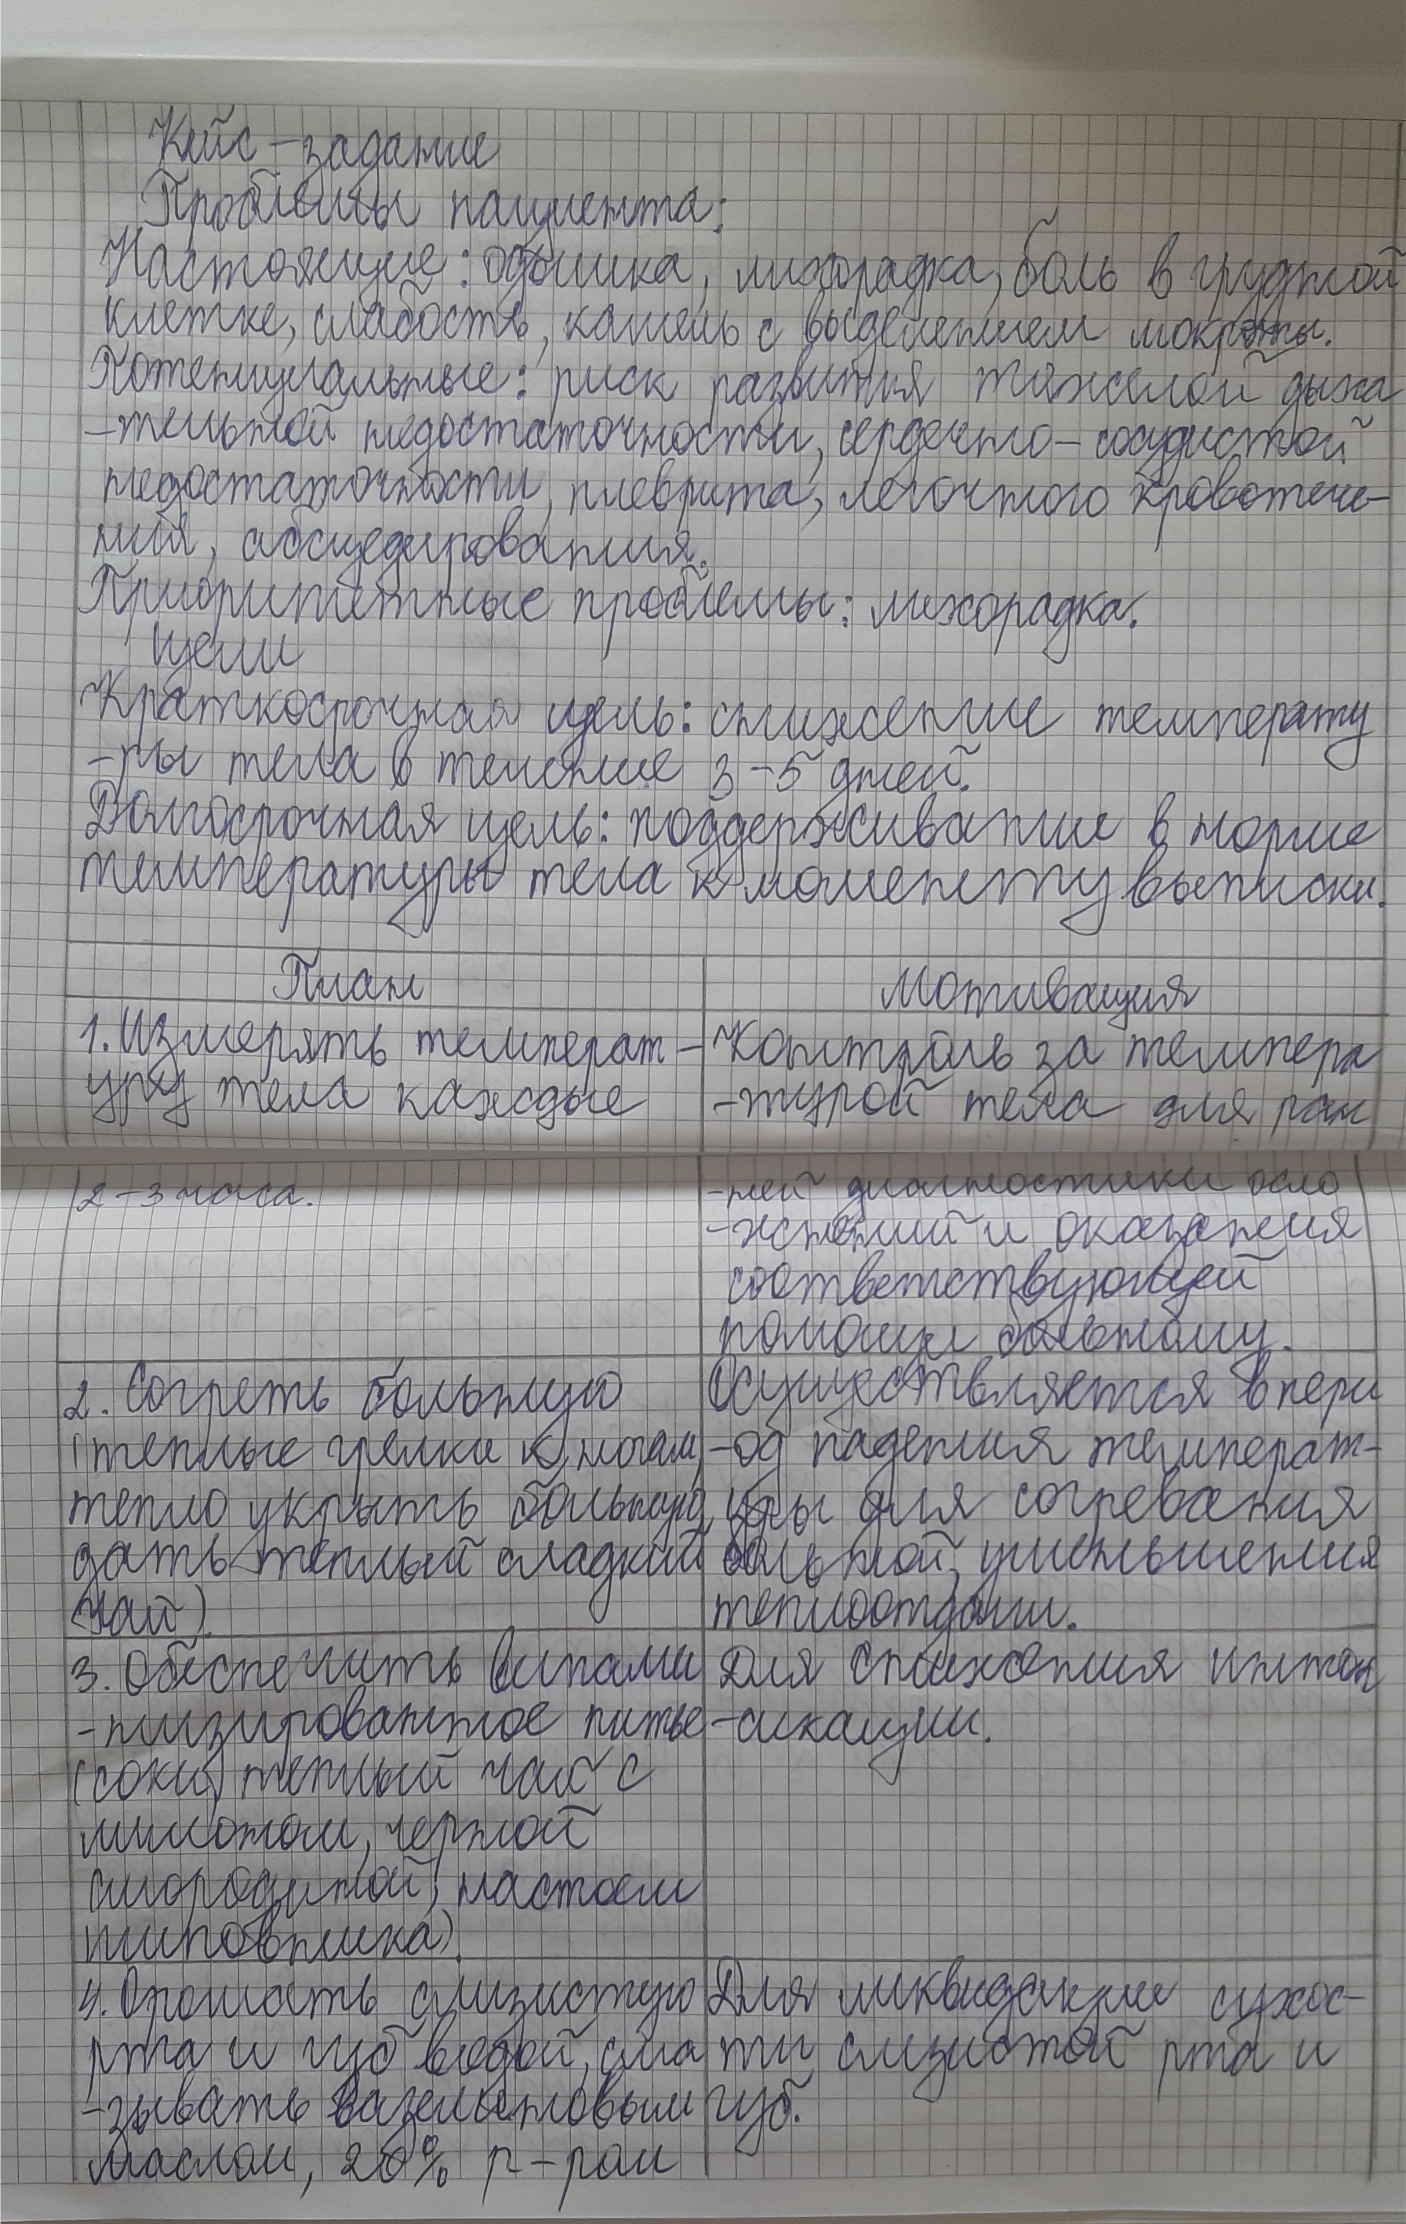 Кейс-задание
Проблемы пациента:
Настоящие: одышка, лихорадка, боль в грудной
клетке, слабость, кашель с выделением мокроты.
Потенциальные: риск развития тяжелой дыха
-тельной недостаточности, сердечно-сосудистой
недостаточности, плеврита, легочного кровотече-
ния, абсцедирования.
Приоритетные проблемы: лихорадка.
Цели
Краткосрочная цель: снижение температу
-ры тела в течение 3-5 дней.
Долгосрочная цель: поддерживание в норме
температуры тела к моменту выписки.
План
Мотивация
1. Измерять температ-
уру тела каждые
2-3 часа.
Контроль за темпера
-турой тела для ран
-ней диагностики осло
-жнений и оказания
соответствующей
помощи больному.
2. Согреть больную
(теплые грелки к ногам,
тепло укрыть больную,
дать теплый сладкий
чай).
Осуществляется в пери
-од падения температ-
уры для согревания
больной, уменьшения
теплоотдачи.
3. Обеспечить витами
-низированное питье
(соки, теплый чай с
лимоном, черной
смородиной, настоем
шиповника).
Для снижения инток
-сикации.
4. Орошать слизистую
рта и губ водой, сма
-зывать вазелиновым
маслом, 20% р-ром
Для ликвидации сухос-
ти слизистой рта и
губ.